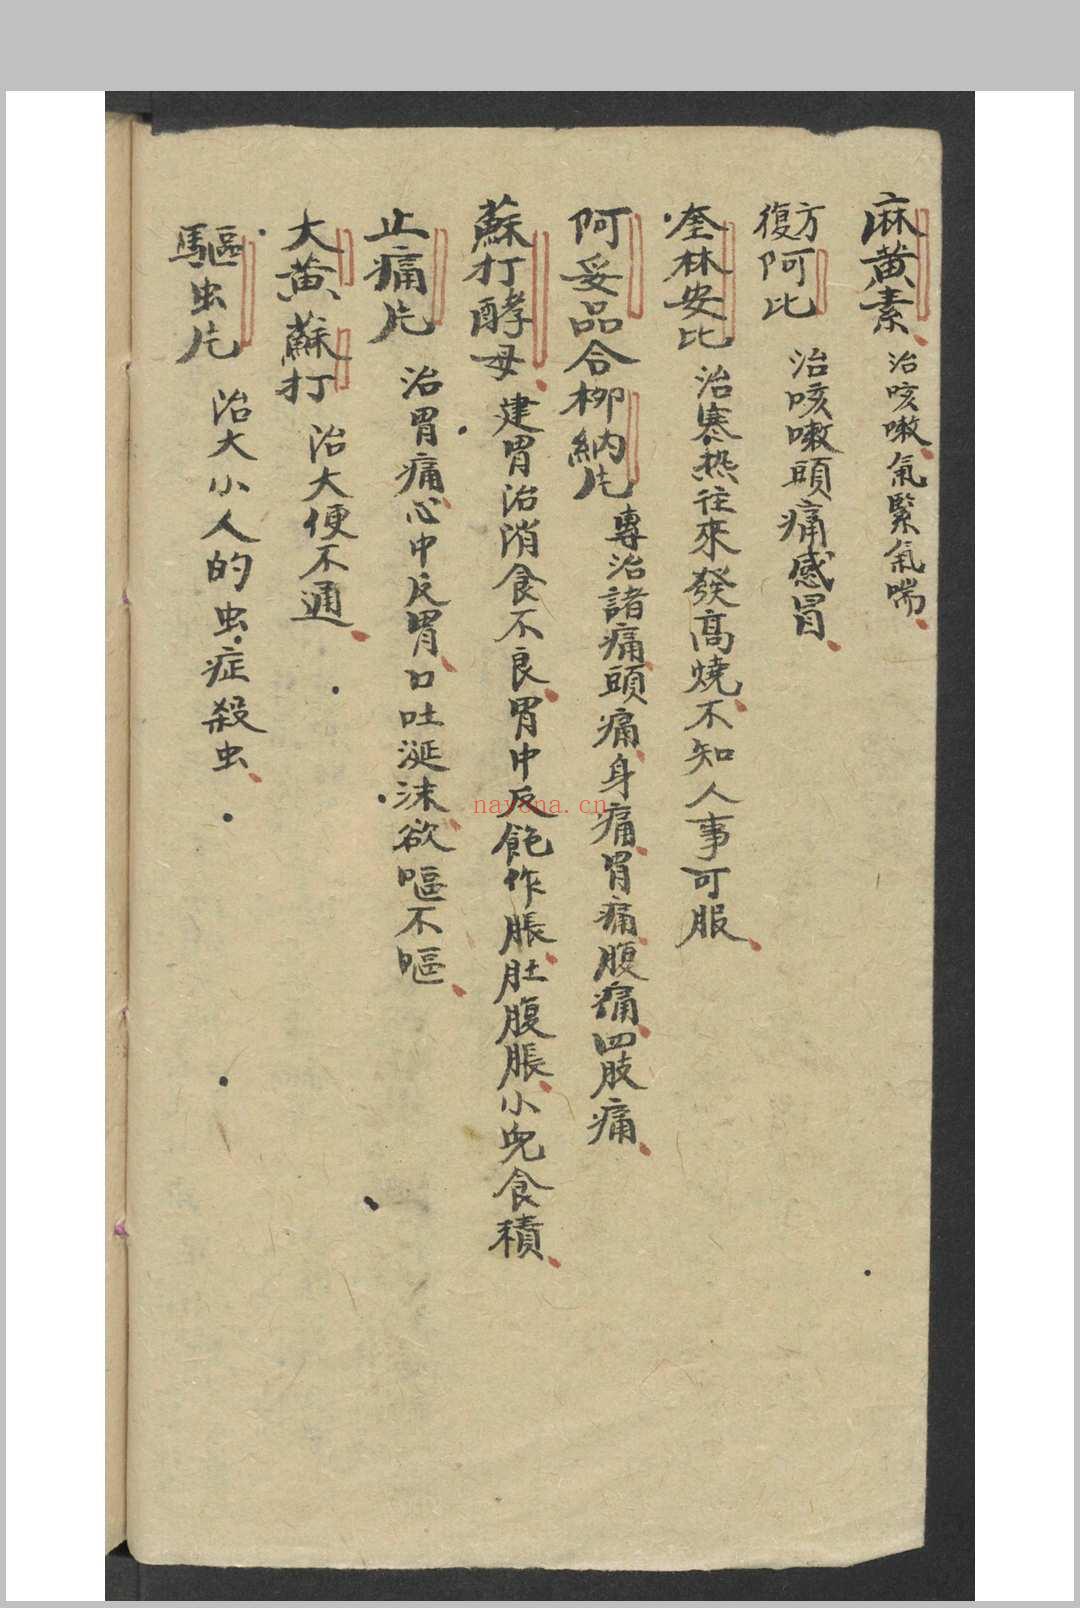 麻黄素 治咳嗽氣緊氣喘
復方阿比 治咳嗽頭痛感冒
奎林安比 治寒热往來發高燒不知人事可服
阿妥品合柳納片 專治諸痛頭痛身痛胃痛腹痛四肢痛
蘇打酵母 建胃治消食不良胃中反飽作脹肚腹脹小兒食積
止痛片 治胃痛心中反胃口吐涎沫欲嘔不嘔
大黄蘇打 治大便不通
驅虫片 治大小人的虫症殺虫
nayona.cn